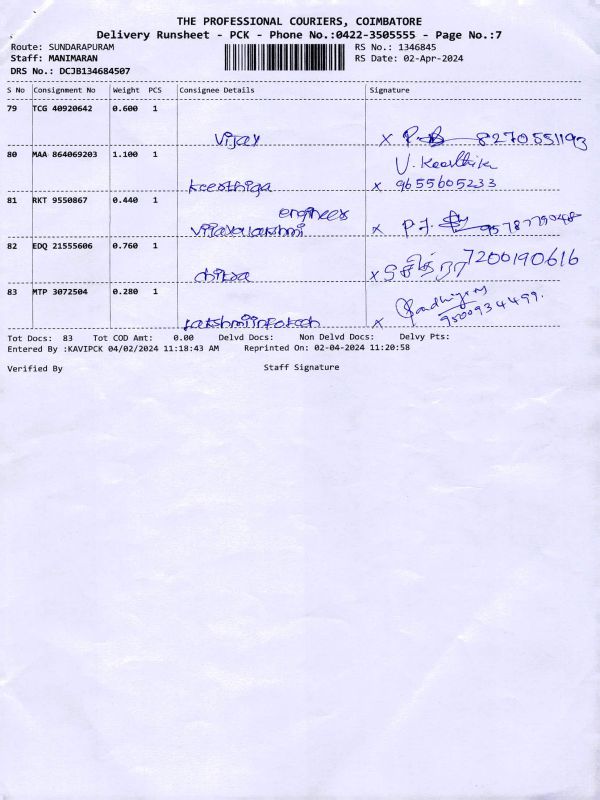 THE PROFESSIONAL COURIERS, COIMBATORE
Delivery Runsheet - PCK - Phone No.:0422-3505555 - Page No.:7
Route: SUNDARAPURAM RS No.: 1346845
Staff: MANIMARAN RS Date: 02-Apr-2024
DRS No.: DCJB134684507
S No Consignment No Weight PCS Consignee Details Signature
79 TCG 40920642 0.600 1
vijay x 8270551193
80 MAA 864069203 1.100 1 V. Keerthika
keerthiga x 9655605233
81 RKT 9550867 0.440 1 engineer
vijayalakshmi x P.J. 9578779048
82 EDQ 21555606 0.760 1
chitra x சித்ரா 7200190616
83 MTP 3072504 0.280 1
Lakshmiinfotech x 9500934499.
Tot Docs: 83 Tot COD Amt: 0.00 Delvd Docs: Non Delvd Docs: Delvy Pts:
Entered By :KAVIPCK 04/02/2024 11:18:43 AM Reprinted On: 02-04-2024 11:20:58
Verified By Staff Signature